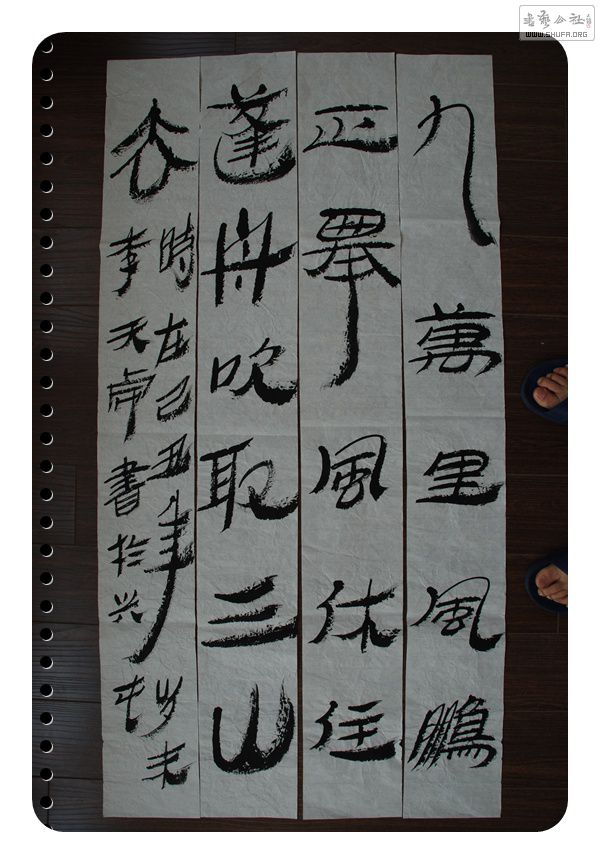 九萬里風鵬
正舉風休住
蓬舟吹取三山
去
時在己丑年岁末
李天虎書於兴屯
書藝公社
WWW.SHUFA.ORG